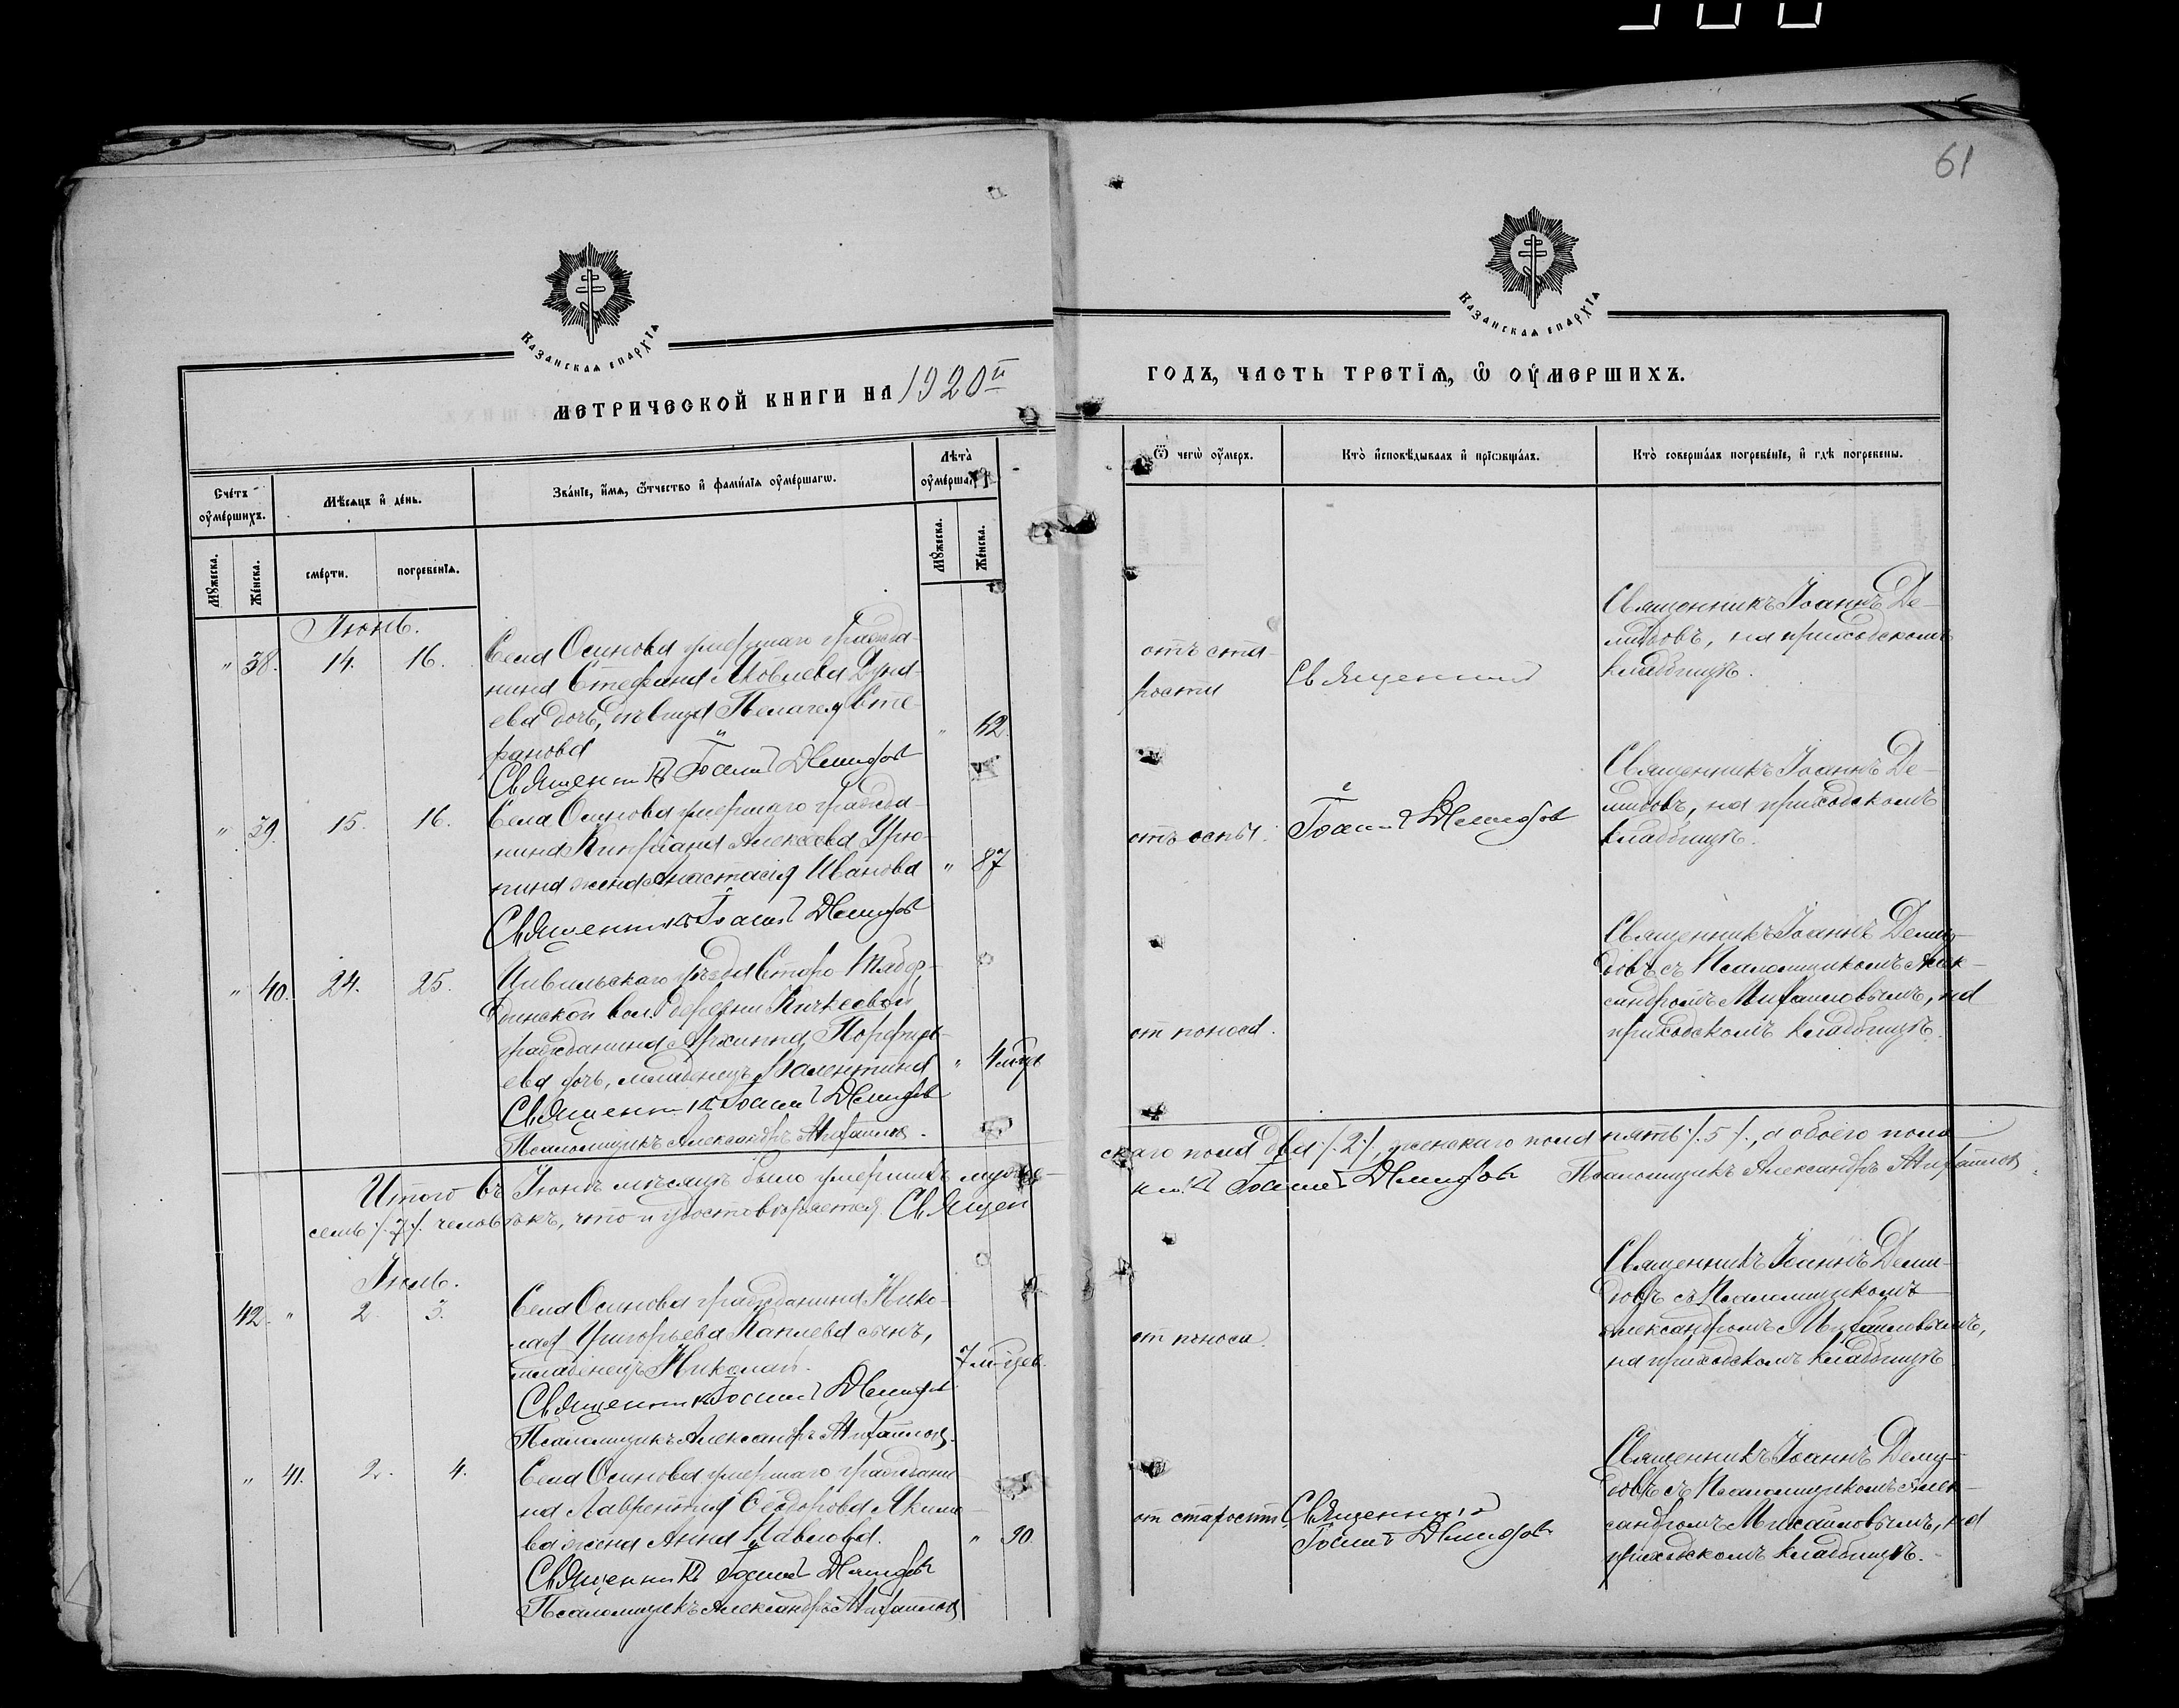 61
КАЗАНСКАЯ ЕПАРХІЯ
КАЗАНСКАЯ ЕПАРХІЯ
МЕТРИЧЕСКОЙ КНИГИ НА 1920й
ГОДЪ, ЧАСТЬ ТРЕТІЯ, Ѡ ОУМЕРШИХЪ.
Счетъ оумершихъ.
Мѣсяцъ и день.
Званіе, имя, ѿчество и фамилія оумершагѡ.
Лѣта оумерша
Мꙋжеска.
Женска.
смерти.
погребенія.
Мꙋжеска.
Женска.
Ѿ чегѡ оумеръ.
Кто исповѣдывалъ и пріѡбщалъ.
Кто совершалъ погребеніе, и гдѣ погребены.
Іюнь.
" 38. 14. 16.
Села Осинова умершаго гражда-
нина Стефана Яковлева
ева дочь, дѣвица Пелагея Сте-
фанова
Священникъ Іоаннъ Демидовъ
" 62.
отъ ста-
рости
Священникъ
Священникъ Іоаннъ Де-
мидовъ, на приходскомъ
кладбищѣ.
" 39. 15. 16.
Села Осинова умершаго гражда-
нина Кипріана Алексѣева Урю-
пина жена Анастасія Иванова
" 87
Священникъ Іоаннъ Демидовъ
отъ оспы.
Іоаннъ Демидовъ
Священникъ Іоаннъ Де-
мидовъ, на приходскомъ
кладбищѣ.
" 40. 24. 25.
Цивильскаго уѣзда Старо-
вол. деревни
гражданина Архиппа Порфирь-
ева дочь, младенецъ Валентина
Священникъ Іоаннъ Демидовъ
Псаломщикъ Александръ Михайловъ.
" 4 мѣц
от поноса.
Священникъ Іоаннъ Деми-
довъ съ Псаломщикомъ Алек-
сандромъ Михайловымъ, на
приходскомъ кладбищѣ.
Итого въ Іюнѣ мѣсяцѣ было умершихъ муже-
скаго пола два /.2/, женскаго пола пять /.5/., а обоего пола
семь /.7/. человѣкъ, что и удостовѣряется Священ
никъ Іоаннъ Демидовъ Псаломщикъ Александръ Михайловъ.
Іюль.
42. " 2. 3.
Села Осинова гражданина Нико-
лая Григорьева Каплева сынъ,
младенецъ Николай.
7 м-цев.
Священникъ Іоаннъ Демидовъ
Псаломщикъ Александръ Михайловъ.
от поноса.
Священникъ Іоаннъ Деми-
довъ съ Псаломщикомъ
Александромъ Михайловымъ,
на приходскомъ кладбищѣ
" 41. 2. 4.
Села Осинова умершаго граждани
на Лаврентія Ѳеодорова Акимо-
ва жена Анна Павлова.
" 90.
Священникъ Іоаннъ Демидовъ
Псаломщикъ Александръ Михайловъ
от старости
Священникъ
Іоаннъ Демидовъ
Священникъ Іоаннъ Деми-
довъ съ Псаломщикомъ Алек-
сандромъ Михайловымъ, на
приходскомъ кладбищѣ.